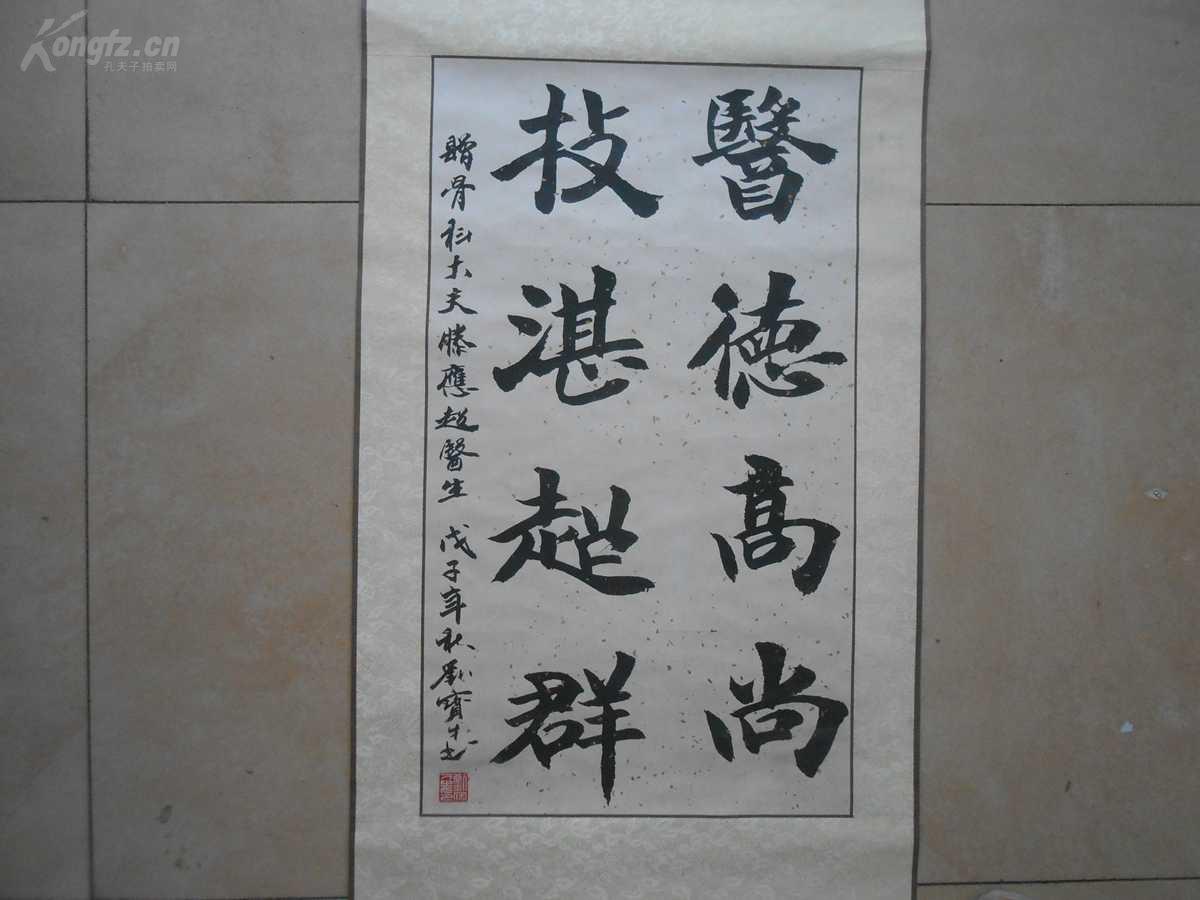 醫德高尚
技湛超群
贈骨科大夫滕應超醫生 戊子年秋劉寶 書
Kongfz.cn
孔夫子拍卖网